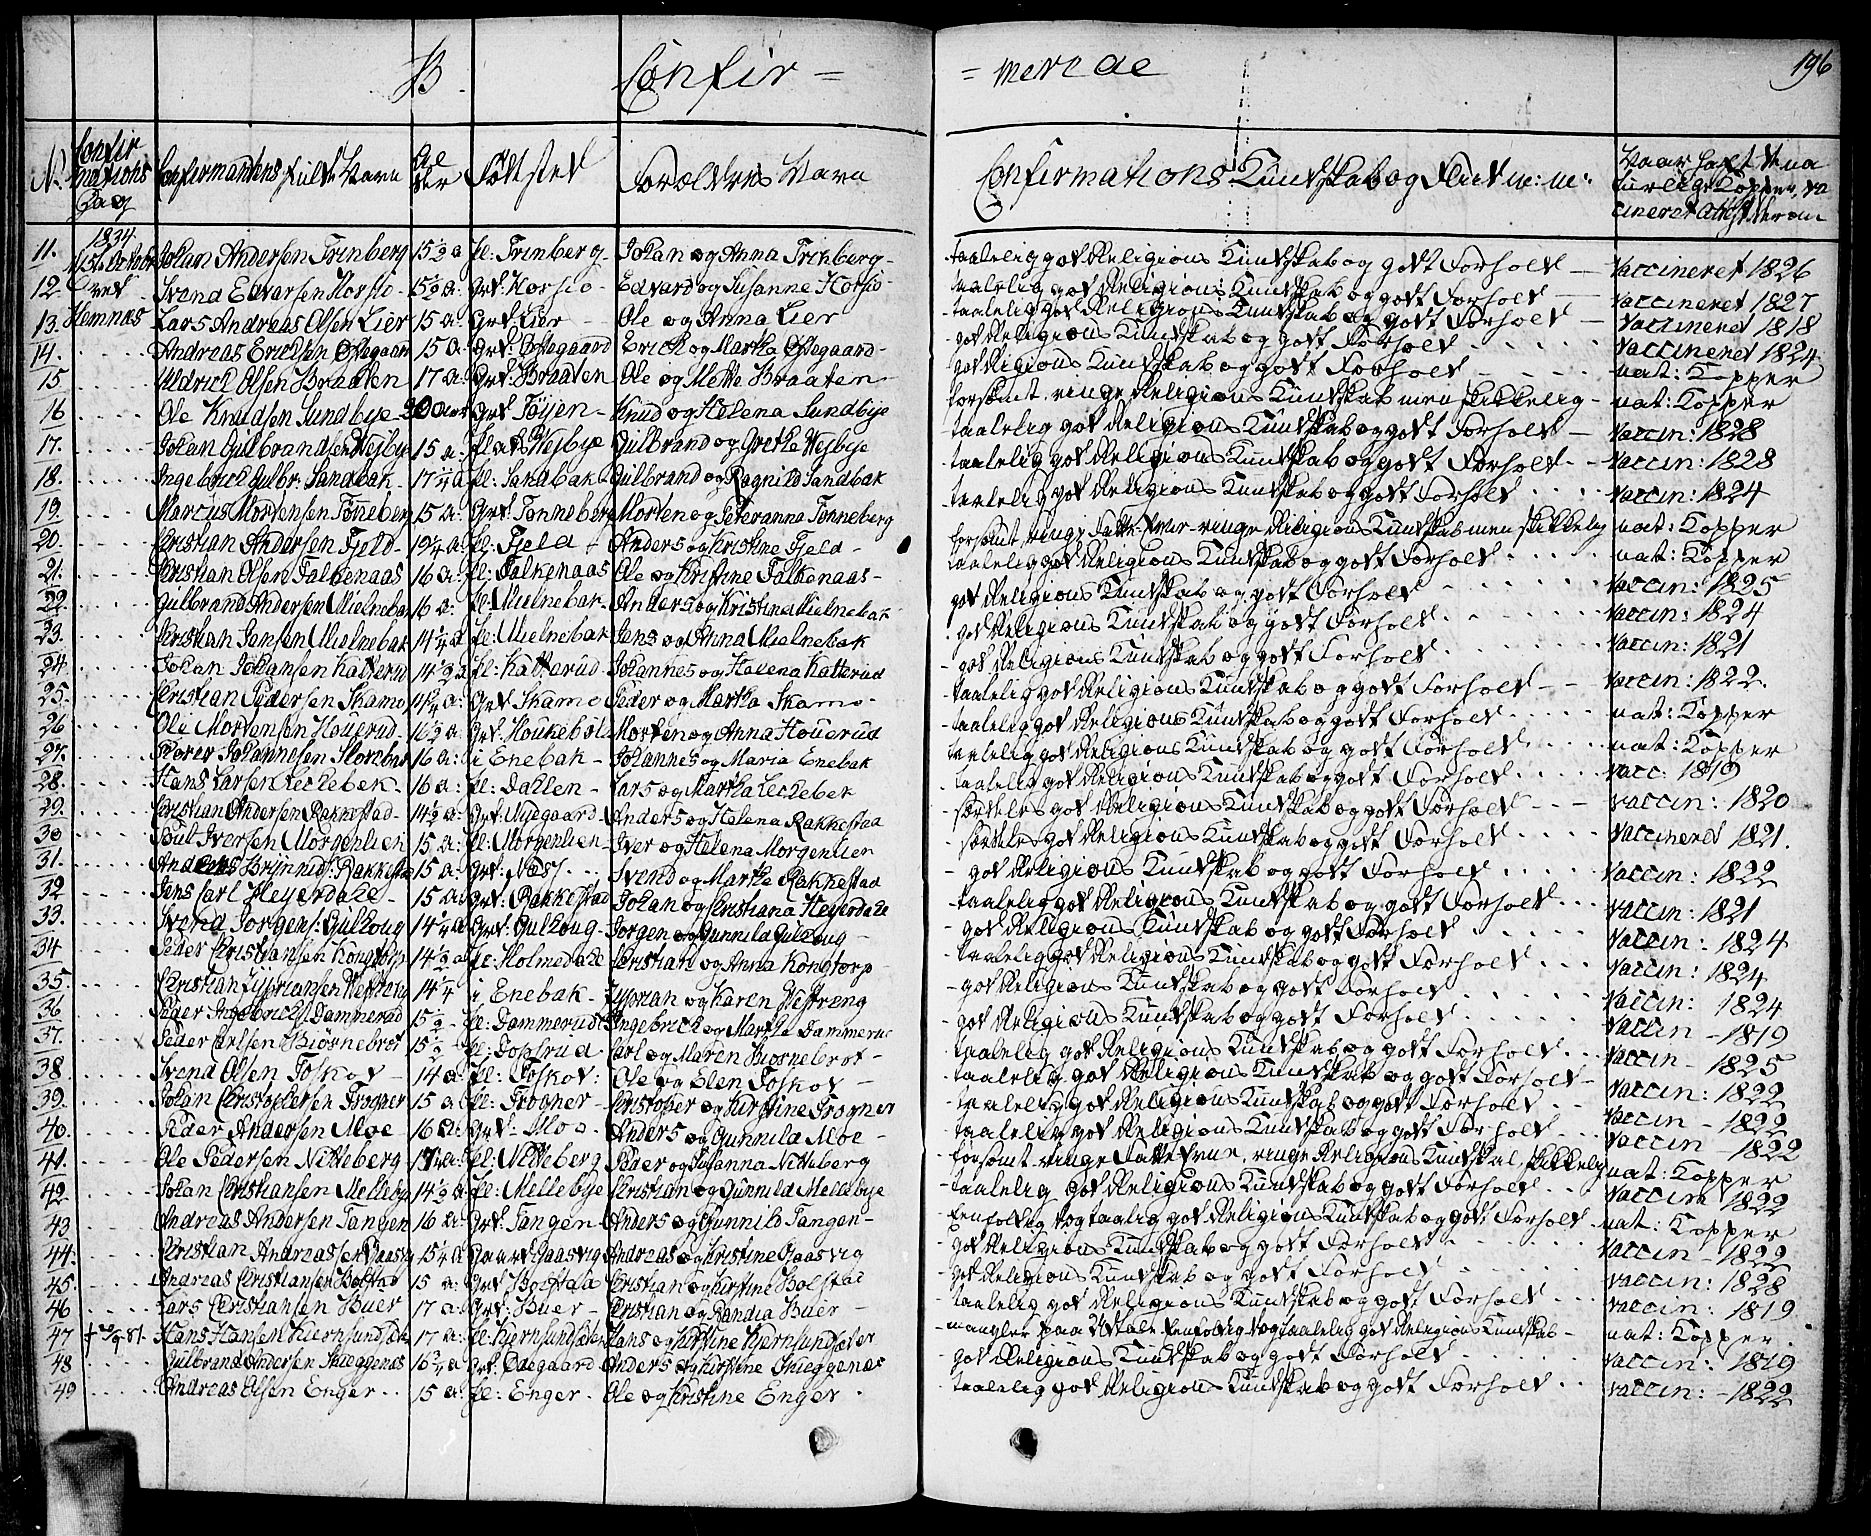 B. Confir = = merede 196
No. Confirmations Dag Confirmandens fulde Navn Alder Fødsted Forældres Navn Confirmations Kundskab og Flid m: m: Naar haft de naturlige Kopper, vaccineret
11. 1834 Johan Andersen Trinberg 15½ a pl: Trinberg - Johan og Anna Trinberg - taalelig god Religions Kundskab og godt Forhold - Vaccineret 1826
12. Svend Edvarsen Horsio - 15½ a: Grd: Horsio - Edvard og Susanne Horsio - taalelig god Religions Kundskab og godt Forhold - Vaccineret 1827
13. Hemnæs Lars Andreas Olsen Lier 15 a: Grd Lier - Ole og Anna Lier taalelig god Religions Kundskab og godt Forhold - Vaccineret 1818
14. Andreas Erichsen Østegaard 15 a: Grd: Østegaard Erich og Martha Østegaard - god Religions Kundskab og godt Forhold Vaccineret 1824
15 Uldrich Olsen Braaten 17 a: Grd: Braaten Ole og Mette Braaten - god Religions Kundskab og godt Forhold nat: Kopper
16 Ole Knudsen Sundbye 20 aar Grd Tøyen - Knud og Helena Sundbye forsømt, ringe Religions Kundskab men skikkelig - nat: Kopper
17. Johan Gulbrandsen Westbye 15 a: Gulbrand og Grethe Westbye taalelig god Religions Kundskab og godt Forhold - Vaccin: 1828
18. Ingebrich Gulbr: Sandbak - 17¼ a pl: Sandbak - Gulbrand og Ragnild Sandbak taalelig god Religions Kundskab og godt Forhold - Vaccin: 1828
19. Marcus Mortensen Tønneberg 15 a: Grd Tønneberg Morten og Peteranna Tønneberg taalelig god Religions Kundskab og godt Forhold Vaccin: 1824
20. Christian Andersen Fjeld - 19¼ a: pl: Fjeld - Anders og Kristine Fjeld - forsømt, ringe Fatte Evne - ringe Religions Kundskab men skikkelig nat: Kopper
21. Christian Olsen Falkenaas 16 a: pl: Falkenaas Ole og Kristine Falkenaas - taalelig god Religions Kundskab og godt Forhold nat: Kopper
22 Gulbrand Andersen Mielnebak 16 a: pl: Mielnebak - Anders og Kristine Mielnebak god Religions Kundskab og godt Forhold Vaccin: 1825
23. Christian Jensen Mielnebak 14¼ a pl: Mielnebak Jens og Anna Mielnebak god Religions Kundskab og godt Forhold Vaccin: 1824
24. Johan Johansen Katterud 14½ a pl: Katterud - Johannes og Helena Katterud - god Religions Kundskab og godt Forhold Vaccin: 1821
25. Christian Pedersen Skamo 14¼ a: Grd Skamo Peder og Martha Skamo - taalelig god Religions Kundskab og godt Forhold - Vaccin: 1822.
26 Ole Mortensen Houerud - 16½ a: Grd: Morten og Anna Houerud - taalelig god Religions Kundskab og godt Forhold nat: Kopper
27. Johannesen 16 a: i Enebak - Johannes og Maria Enebak taalelig god Religions Kundskab og godt Forhold nat: Kopper
28. Hans Larsen Lichebek - 16 a: pl: Dahlen - Lars og Martha Lichebek - taalelig god Religions Kundskab og godt Forhold Vacc: 1819
29. Christian Andersen Rakkestad - 14½ a: Grd: Nyegaard - Anders og Helena Rakkestad særdeles god Religions Kundskab og godt Forhold - - Vaccin: 1820
30 Poul Iversen Morgenlien 15 a: pl: Morgenlien - Iver og Helena Morgenlien særdeles god Religions Kundskab og godt Forhold Vaccineret 1821.
31. Andreas Brynild: Rakkestad 15 a: Grd: Næs Svend og Marthe Rakkestad - god Religions Kundskab og godt Forhold Vaccin: 1822
32 Jens Carl Heyerdahl - 15 a: Grd: Rakkestad Johan og Christiana Heyerdahl - taalelig god Religions Kundskab og godt Forhold Vaccin: 1821
33. Svend Jorgens: Gulhoug 14¼ a Grd: Gulhoug - Jorgen og Gunnild Gulhoug - - god Religions Kundskab og godt Forhold Vaccin: 1824
34 Peder Christiansen Kongtorp 14½ a pl: Holmedahl Christian og Anna Kongtorp - taalelig god Religions Kundskab og godt Forhold Vaccin: 1824
35. Christian Zypriansen 14¼ i Enebak - Zyprian og Karen - god Religions Kundskab og godt Forhold Vaccin: 1824
36 Peder Ingebrichs: Dammerud 15½ - pl: Dammerud Ingebrich og Martha Dammerud god Religions Kundskab og godt Forhold Vaccin - 1819
37. Peder Carlsen Biørnebrot 15½ - pl: Carl og Maren Biørnebrot - taalelig god Religions Kundskab og godt Forhold Vaccin - 1825
38 Svend Olsen Foskov - 14 a: pl: Foskov: Ole og Elen Foskov - taalelig god Religions Kundskab og godt Forhold - Vaccin: 1822
39. Johan Christophersen Frogner 15 a: pl: Frogner - Christopher og Kirstine Frogner taalelig god Religions Kundskab og godt Forhold Vaccin - 1822
40. Peder Andersen Moe - 16 a: Grd: Moe - Anders og Gunnild Moe - taalelig god Religions Kundskab og godt Forhold Vaccin - 1822
41. Ole Pedersen Nitteberg 17 a: pl: Nitteberg Peder og Susanna Nitteberg forsømt ringe Fatte Evne, ringe Religions Kundskab, skikkelig nat: Kopper
42. Johan Christiansen Mellebye 14½ a: pl: Mellebye Christian og Gunnild Mellebye - taalelig god Religions Kundskab og godt Forhold Vaccin 1822
43 Andreas Andersen Tangen 16 a: Grd: Tangen - Anders og Gunnild Tangen - Eenfoldig og taalig god Religions Kundskab og godt Forhold nat: Kopper
44. Christian Andreassen Haasvig 15¼ a Gaard Haasvig Andreas og Kristine Haasvig - god Religions Kundskab og godt Forhold Vaccin - 1822
45. Andreas Christiansen Bolstad 15 a: Grd Bolstad Christian og Kirstine Bolstad god Religions Kundskab og godt Forhold Vaccin: 1828
46 Lars Christiansen Buer 17 a: Grd: Buer - Christian og Randia Buer - taalelig god Religions Kundskab og godt Forhold Vaccin: 1819
47 Hans Hansen Kiernsundsæter 17 a: pl: Kjernsundsæter Hans og Kirstine Kjernsundsæter mangler paa Mæle Eenfoldig og taalelig god Religions Kundskab - nat: Kopper.
48 Gulbrand Andersen Skieggenæs 16¾ a: Grd: Ødegaard Anders og Kirstine Skieggenæs god Religions Kundskab og godt Forhold Vaccin: - 1819
49 Andreas Olsen Enger 15 a: pl: Enger - Ole og Christine Enger - taalelig god Religions Kundskab og godt Forhold Vaccin: - 1822